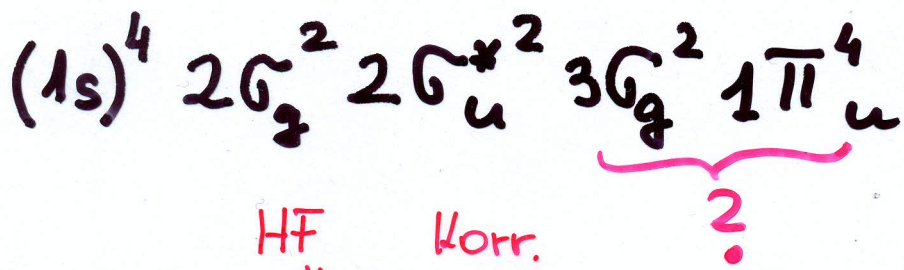 (1s)⁴ 2σg² 2σu*² 3σg² 1πu⁴
?
HF Korr.